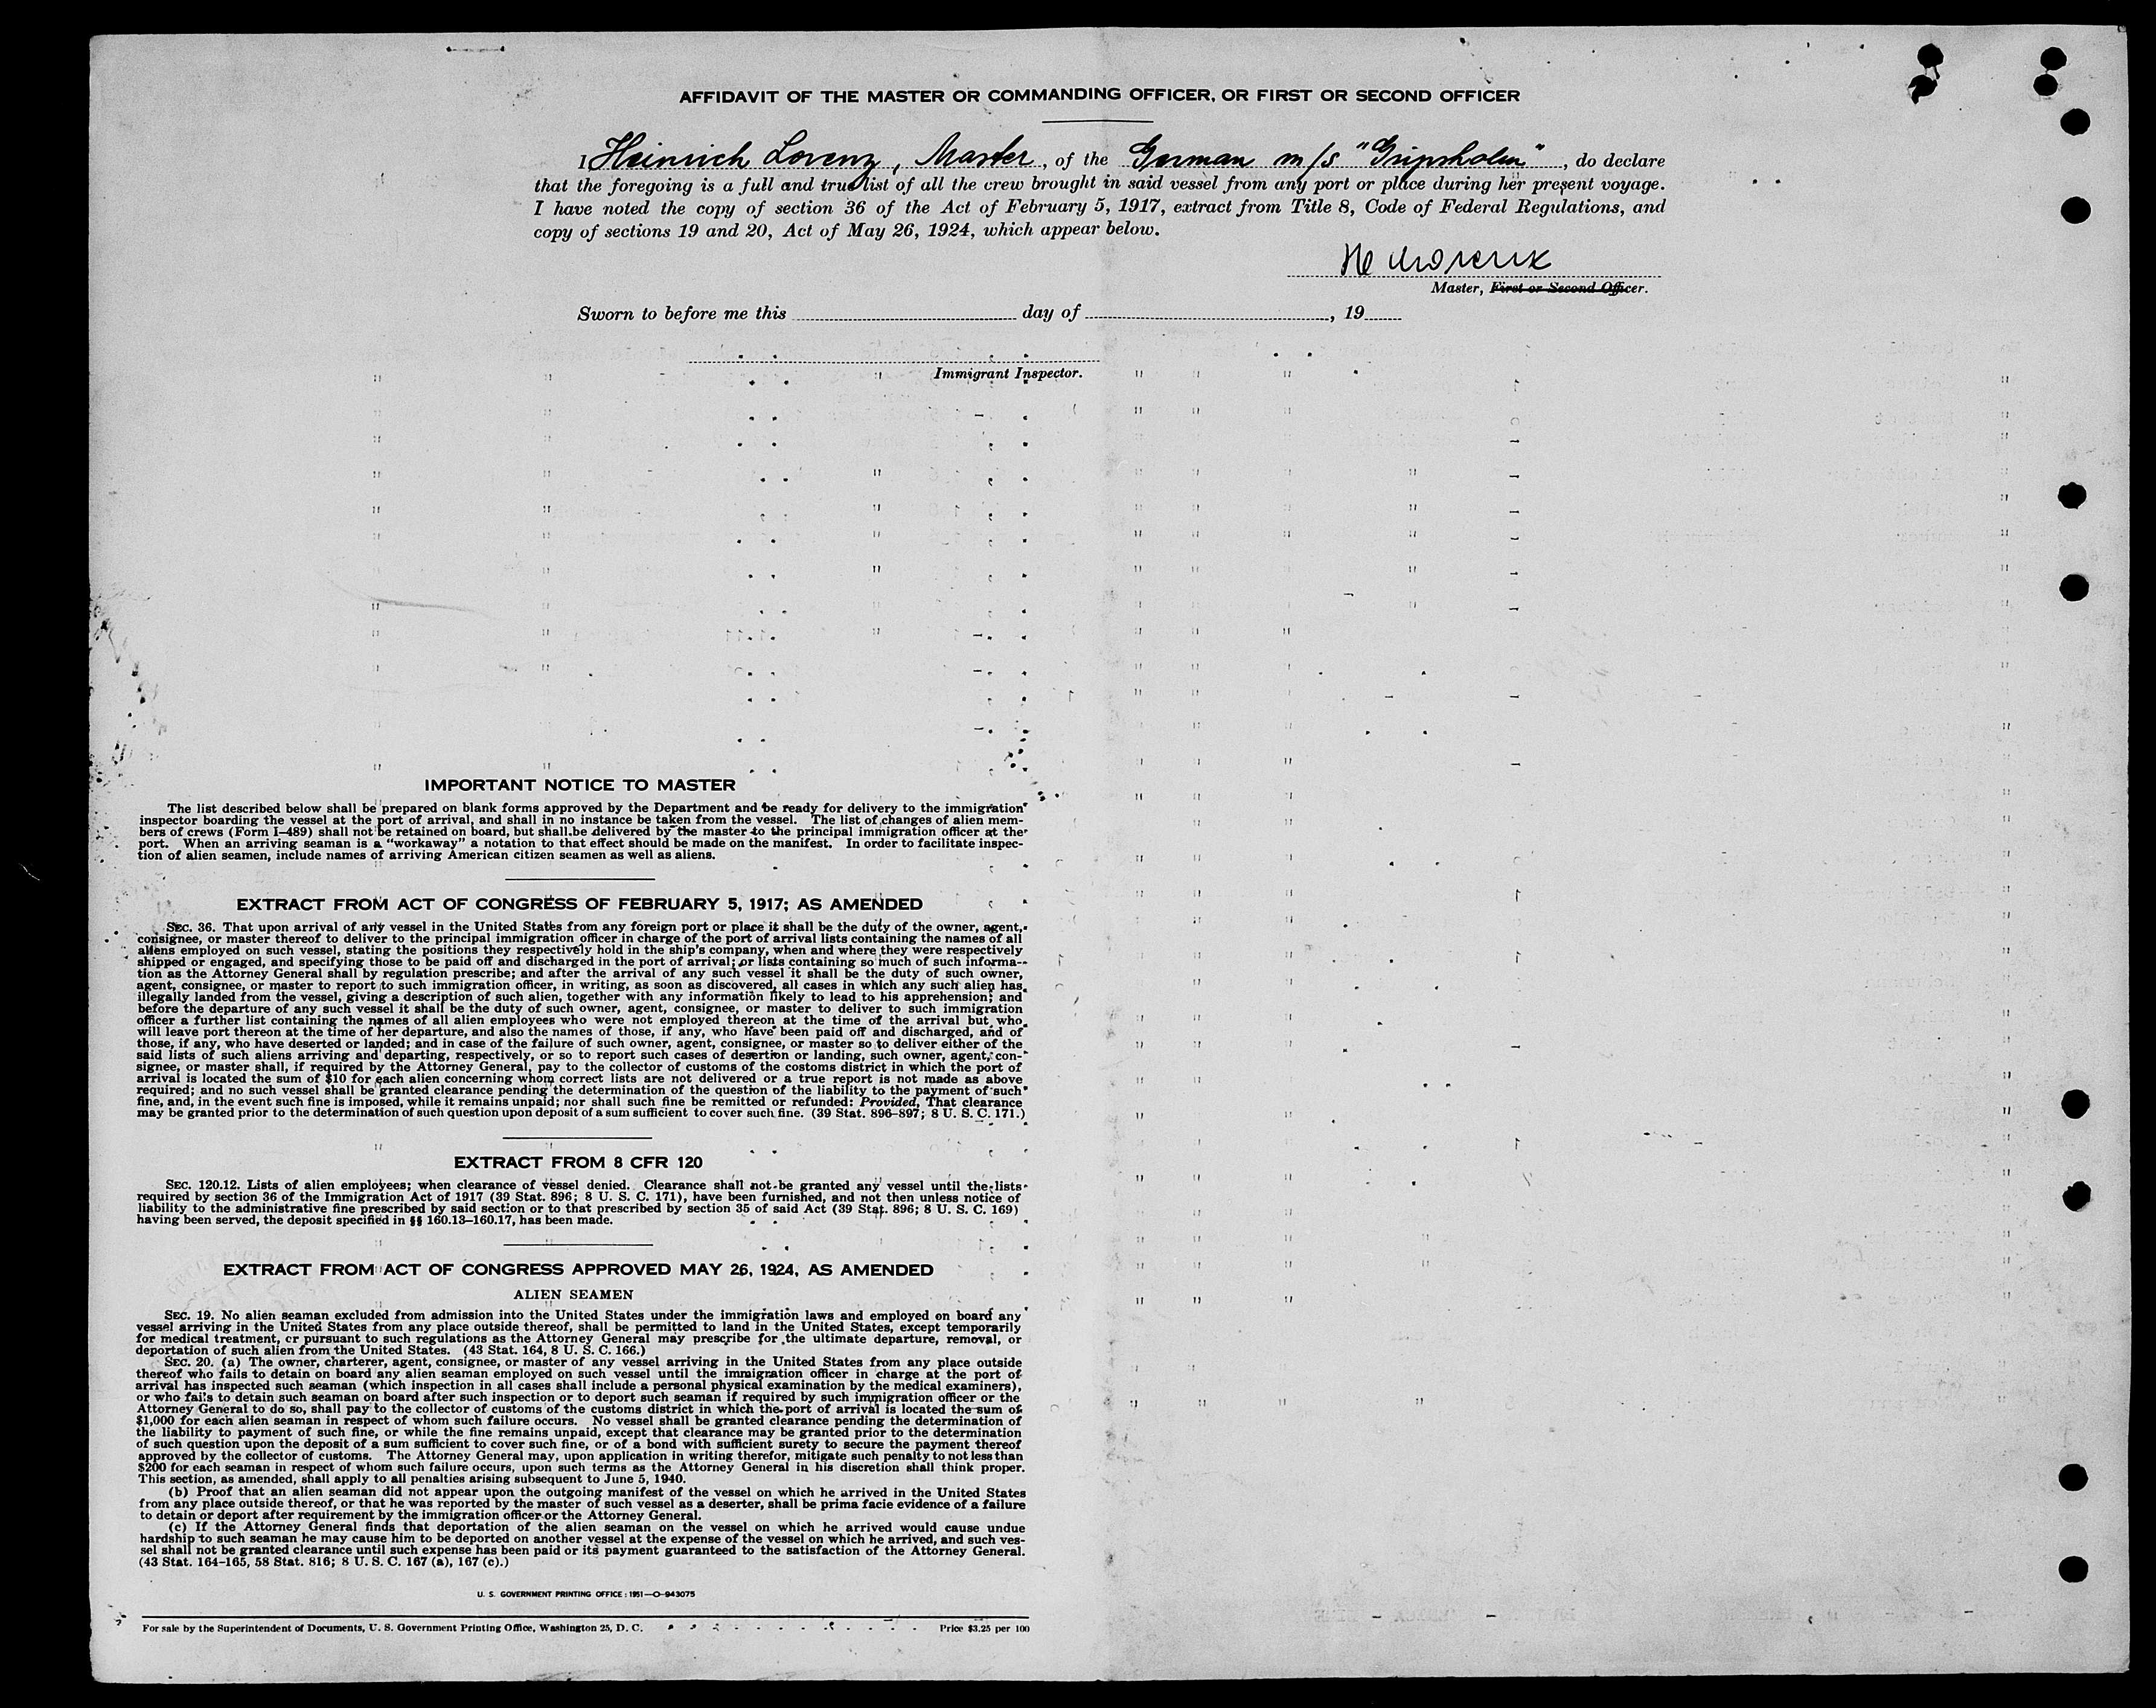 AFFIDAVIT OF THE MASTER OR COMMANDING OFFICER, OR FIRST OR SECOND OFFICER
I Heinrich Lorenz, Master, of the German m/s "Gripsholm", do declare
that the foregoing is a full and true list of all the crew brought in said vessel from any port or place during her present voyage.
I have noted the copy of section 36 of the Act of February 5, 1917, extract from Title 8, Code of Federal Regulations, and
copy of sections 19 and 20, Act of May 26, 1924, which appear below.
Master, First or Second Officer.
Sworn to before me this day of , 19
Immigrant Inspector.
IMPORTANT NOTICE TO MASTER
The list described below shall be prepared on blank forms approved by the Department and be ready for delivery to the immigration
inspector boarding the vessel at the port of arrival, and shall in no instance be taken from the vessel. The list of changes of alien mem-
bers of crews (Form I-489) shall not be retained on board, but shall be delivered by the master to the principal immigration officer at the
port. When an arriving seaman is a "workaway" a notation to that effect should be made on the manifest. In order to facilitate inspec-
tion of alien seamen, include names of arriving American citizen seamen as well as aliens.
EXTRACT FROM ACT OF CONGRESS OF FEBRUARY 5, 1917; AS AMENDED
SEC. 36. That upon arrival of any vessel in the United States from any foreign port or place it shall be the duty of the owner, agent,
consignee, or master thereof to deliver to the principal immigration officer in charge of the port of arrival lists containing the names of all
aliens employed on such vessel, stating the positions they respectively hold in the ship's company, when and where they were respectively
shipped or engaged, and specifying those to be paid off and discharged in the port of arrival; or lists containing so much of such informa-
tion as the Attorney General shall by regulation prescribe; and after the arrival of any such vessel it shall be the duty of such owner,
agent, consignee, or master to report to such immigration officer, in writing, as soon as discovered, all cases in which any such alien has
illegally landed from the vessel, giving a description of such alien, together with any information likely to lead to his apprehension; and
before the departure of any such vessel it shall be the duty of such owner, agent, consignee, or master to deliver to such immigration
officer a further list containing the names of all alien employees who were not employed thereon at the time of the arrival but who
will leave port thereon at the time of her departure, and also the names of those, if any, who have been paid off and discharged, and of
those, if any, who have deserted or landed; and in case of the failure of such owner, agent, consignee, or master so to deliver either of the
said lists of such aliens arriving and departing, respectively, or so to report such cases of desertion or landing, such owner, agent, con-
signee, or master shall, if required by the Attorney General, pay to the collector of customs of the costoms district in which the port of
arrival is located the sum of $10 for each alien concerning whom correct lists are not delivered or a true report is not made as above
required; and no such vessel shall be granted clearance pending the determination of the question of the liability to the payment of such
fine, and, in the event such fine is imposed, while it remains unpaid; nor shall such fine be remitted or refunded: Provided, That clearance
may be granted prior to the determination of such question upon deposit of a sum sufficient to cover such fine. (39 Stat. 896-897; 8 U. S. C. 171.)
EXTRACT FROM 8 CFR 120
SEC. 120.12. Lists of alien employees; when clearance of vessel denied. Clearance shall not be granted any vessel until the lists
required by section 36 of the Immigration Act of 1917 (39 Stat. 896; 8 U. S. C. 171), have been furnished, and not then unless notice of
liability to the administrative fine prescribed by said section or to that prescribed by section 35 of said Act (39 Stat. 896; 8 U. S. C. 169)
having been served, the deposit specified in §§ 160.13-160.17, has been made.
EXTRACT FROM ACT OF CONGRESS APPROVED MAY 26, 1924, AS AMENDED
ALIEN SEAMEN
SEC. 19. No alien seaman excluded from admission into the United States under the immigration laws and employed on board any
vessel arriving in the United States from any place outside thereof, shall be permitted to land in the United States, except temporarily
for medical treatment, or pursuant to such regulations as the Attorney General may prescribe for the ultimate departure, removal, or
deportation of such alien from the United States. (43 Stat. 164, 8 U. S. C. 166.)
SEC. 20. (a) The owner, charterer, agent, consignee, or master of any vessel arriving in the United States from any place outside
thereof who fails to detain on board any alien seaman employed on such vessel until the immigration officer in charge at the port of
arrival has inspected such seaman (which inspection in all cases shall include a personal physical examination by the medical examiners),
or who fails to detain such seaman on board after such inspection or to deport such seaman if required by such immigration officer or the
Attorney General to do so, shall pay to the collector of customs of the customs district in which the port of arrival is located the sum of
$1,000 for each alien seaman in respect of whom such failure occurs. No vessel shall be granted clearance pending the determination of
the liability to payment of such fine, or while the fine remains unpaid, except that clearance may be granted prior to the determination
of such question upon the deposit of a sum sufficient to cover such fine, or of a bond with sufficient surety to secure the payment thereof
approved by the collector of customs. The Attorney General may, upon application in writing therefor, mitigate such penalty to not less than
$200 for each seaman in respect of whom such failure occurs, upon such terms as the Attorney General in his discretion shall think proper.
This section, as amended, shall apply to all penalties arising subsequent to June 5, 1940.
(b) Proof that an alien seaman did not appear upon the outgoing manifest of the vessel on which he arrived in the United States
from any place outside thereof, or that he was reported by the master of such vessel as a deserter, shall be prima facie evidence of a failure
to detain or deport after requirement by the immigration officer or the Attorney General.
(c) If the Attorney General finds that deportation of the alien seaman on the vessel on which he arrived would cause undue
hardship to such seaman he may cause him to be deported on another vessel at the expense of the vessel on which he arrived, and such ves-
sel shall not be granted clearance until such expense has been paid or its payment guaranteed to the satisfaction of the Attorney General.
(43 Stat. 164-165, 58 Stat. 816; 8 U. S. C. 167 (a), 167 (c).)
U. S. GOVERNMENT PRINTING OFFICE : 1951—O-943075
For sale by the Superintendent of Documents, U. S. Government Printing Office, Washington 25, D. C. Price $3.25 per 100